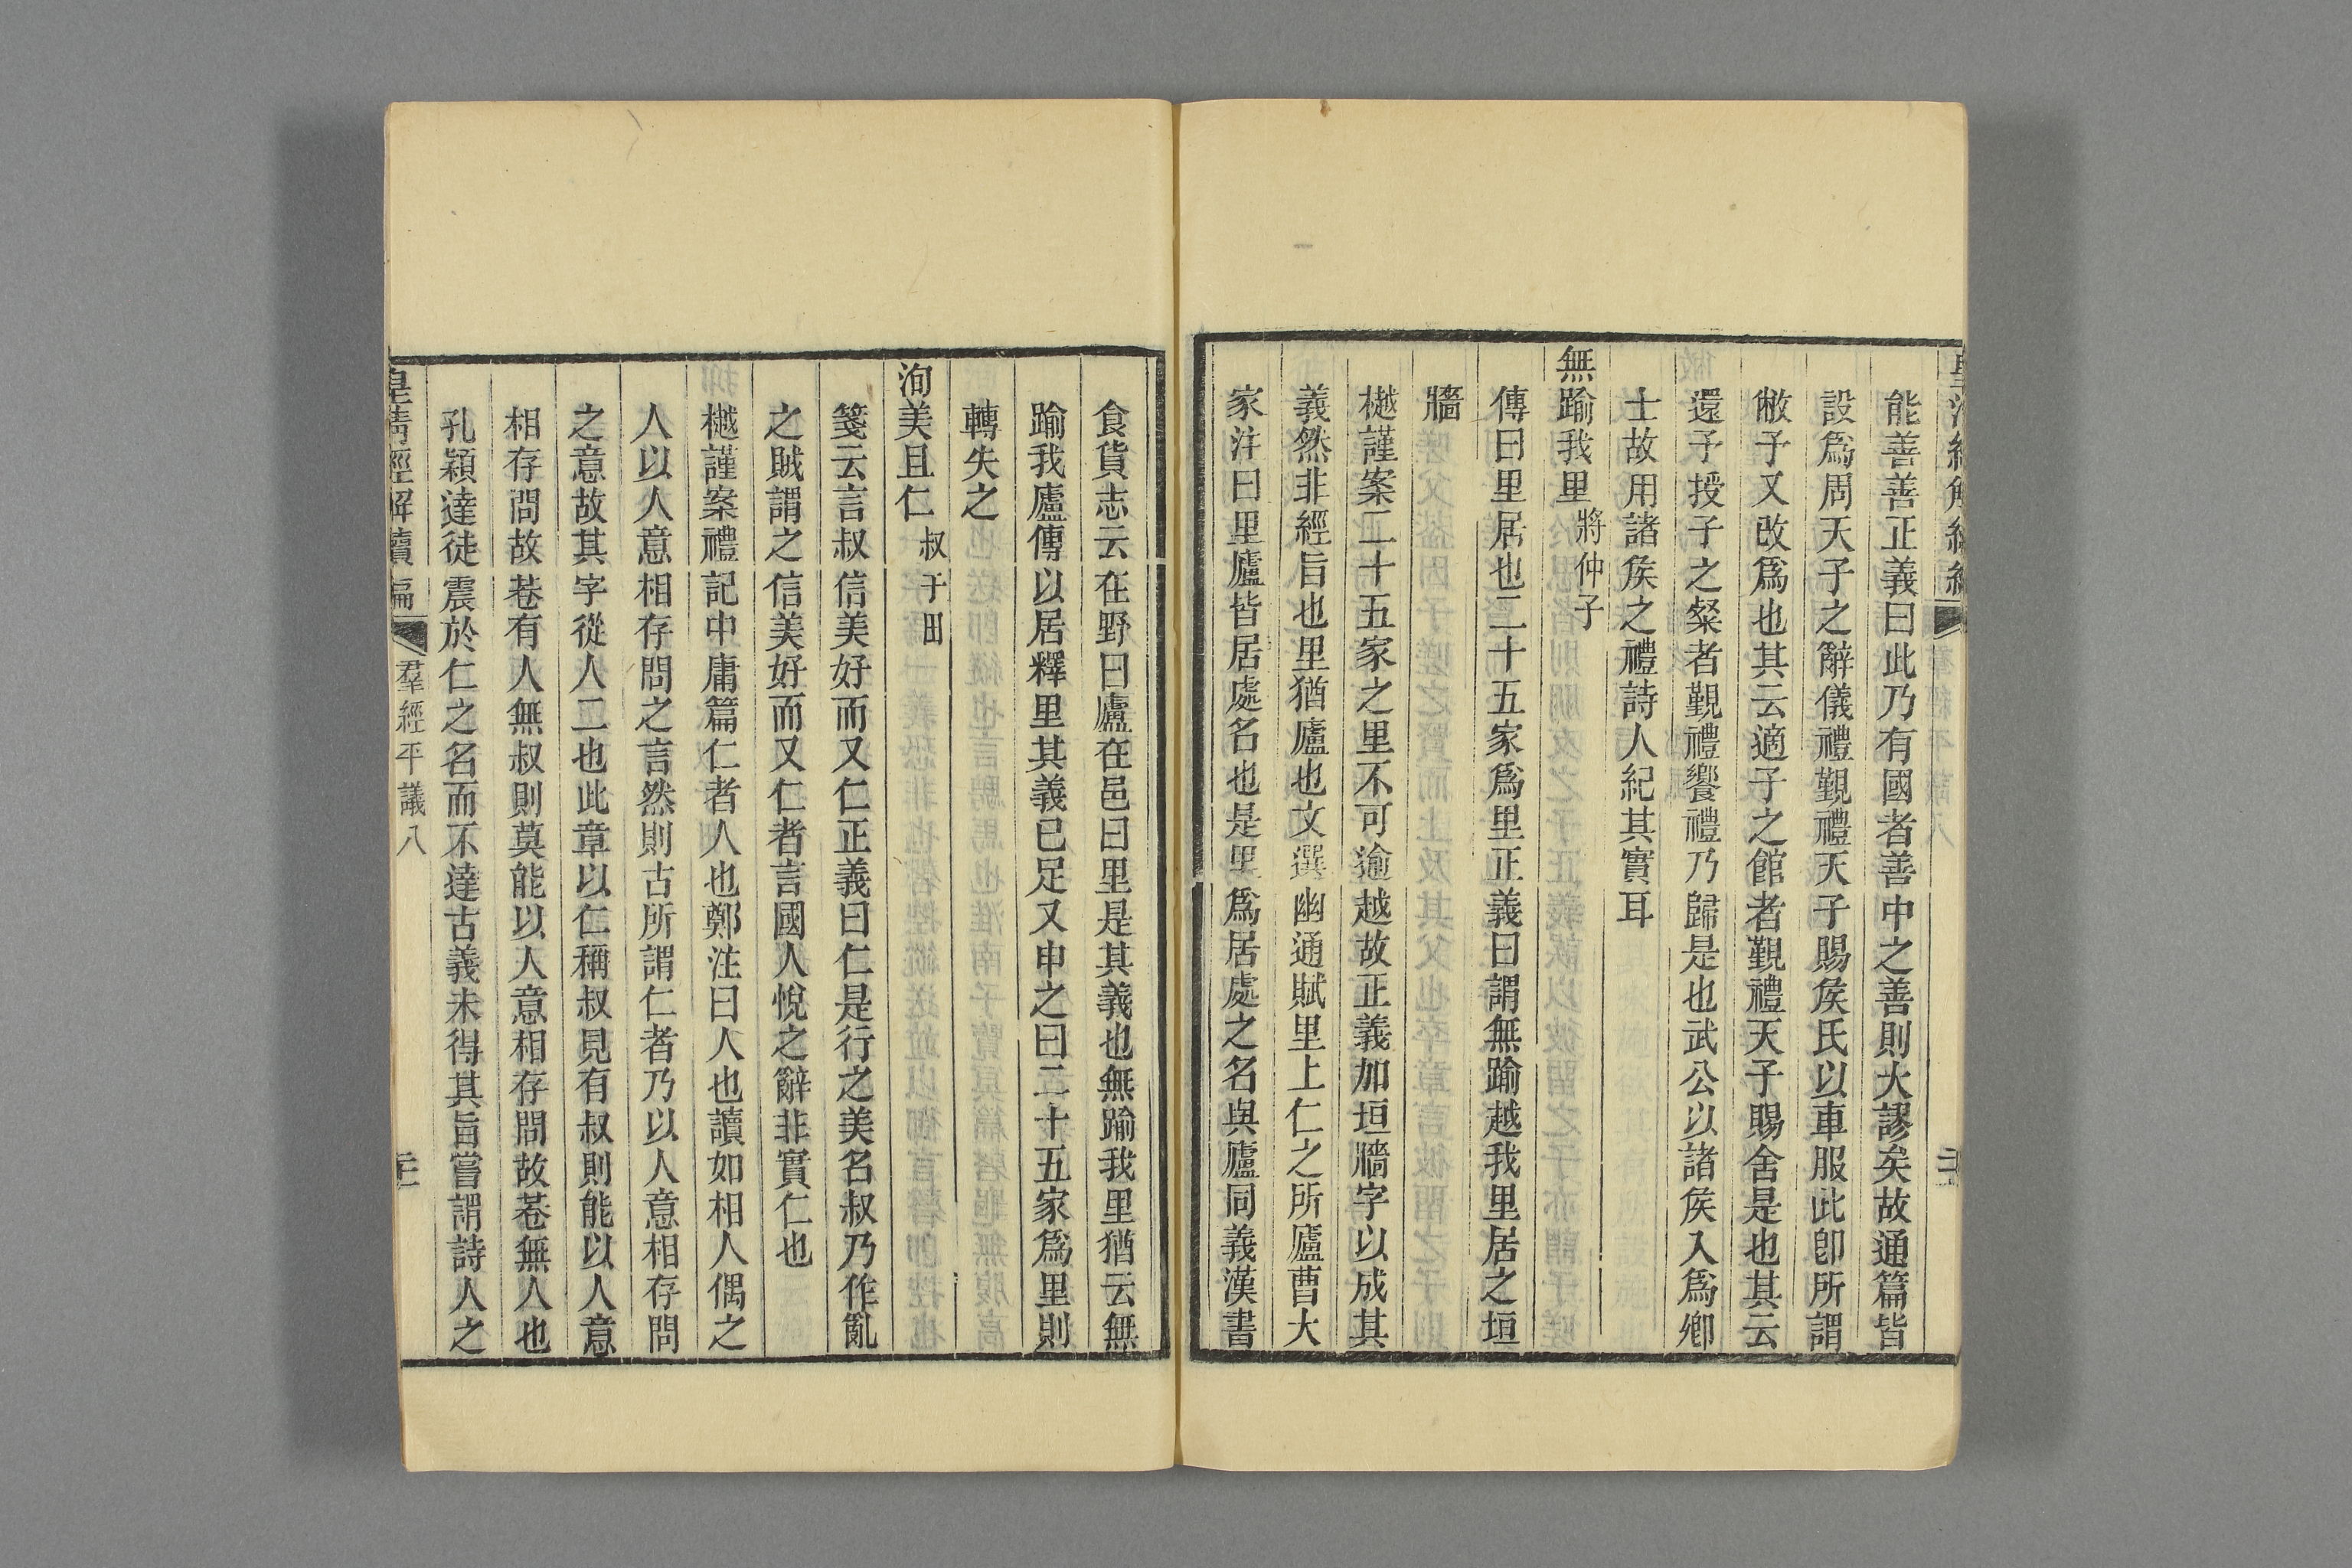 能善善正義曰此乃有國者善中之善則大謬矣故通篇皆
設爲周天子之辭儀禮覲禮天子賜侯氏以車服此卽所謂
敝予又改爲也其云適子之館者覲禮天子賜舍是也其云
還予授子之粲者覲禮饗禮乃歸是也武公以諸侯入爲卿
士故用諸侯之禮詩人紀其實耳
無踰我里將仲子
傳曰里居也二十五家爲里正義曰謂無踰越我里居之垣
牆
樾謹案二十五家之里不可逾越故正義加垣牆字以成其
義然非經旨也里猶廬也文選幽通賦里上仁之所廬曹大
家注曰里廬皆居處名也是里爲居處之名與廬同義漢書
食貨志云在野曰廬在邑曰里是其義也無踰我里猶云無
踰我廬傳以居釋里其義已足又申之曰二十五家爲里則
轉失之
洵美且仁叔于田
箋云言叔信美好而又仁正義曰仁是行之美名叔乃作亂
之賊謂之信美好而又仁者言國人悅之辭非實仁也
樾謹案禮記中庸篇仁者人也鄭注曰人也讀如相人偶之
人以人意相存問之言然則古所謂仁者乃以人意相存問
之意故其字從人二也此章以仁稱叔見有叔則能以人意
相存問故巷有人無叔則莫能以人意相存問故巷無人也
孔穎達徒震於仁之名而不達古義未得其旨嘗謂詩人之
皇清經解續編 羣經平議八